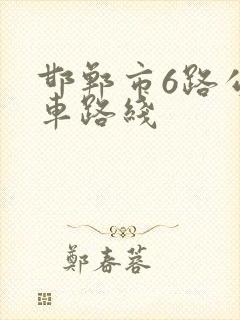 邯郸市6路公
車路綫
鄭春蓉